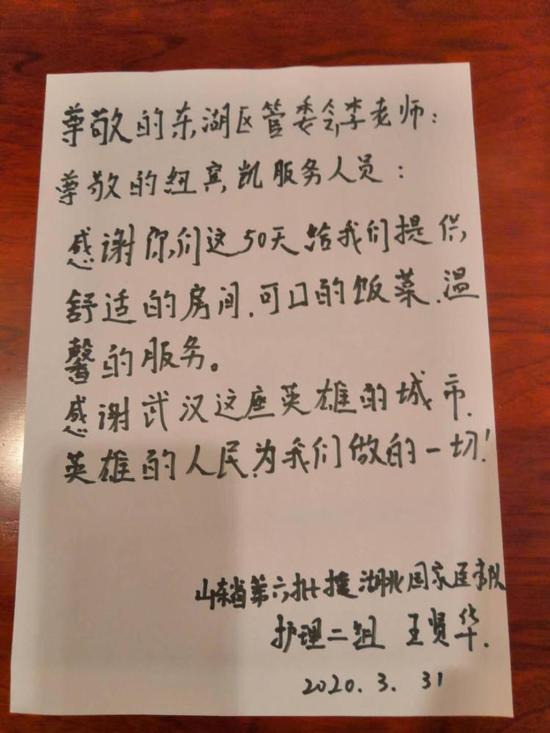 尊敬的东湖区管委会李老师：
尊敬的纽宾凯服务人员：
感谢你们这50天给我们提供
舒适的房间、可口的饭菜、温
馨的服务。
感谢武汉这座英雄的城市、
英雄的人民为我们做的一切！
山东省第六批援湖北国家医疗队
护理二组 王贤华.
2020.3.31